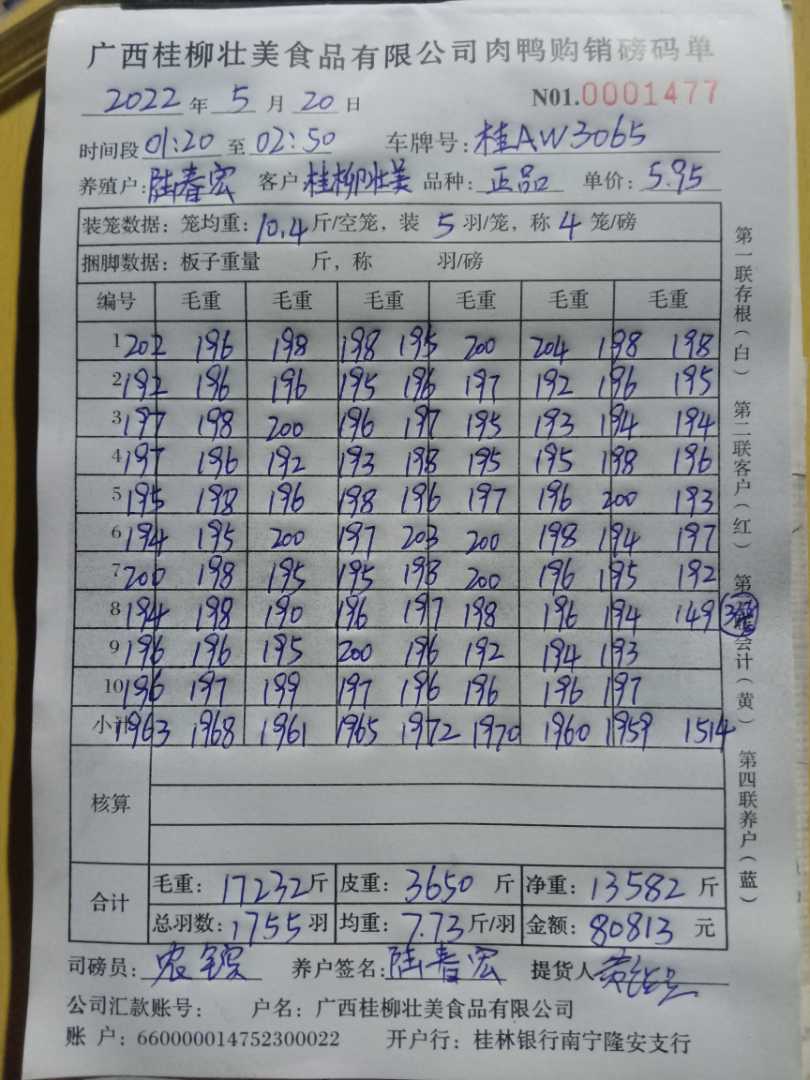 广西桂柳壮美食品有限公司肉鸭购销磅码单
2022 年 5 月 20 日 N01.0001477
时间段 01:20 至 02:50 车牌号: 桂AW3065
养殖户: 陆春宏 客户 桂柳壮美 品种: 正品 单价: 5.95
装笼数据: 笼均重: 10.4 斤/空笼, 装 5 羽/笼, 称 4 笼/磅
捆脚数据: 板子重量 斤, 称 羽/磅
编号 毛重 毛重 毛重 毛重 毛重 毛重
1 202 196 198 198 195 200 204 198 198
2 192 196 196 195 196 197 192 196 195
3 197 198 200 196 197 195 193 194 194
4 197 196 192 193 198 195 195 198 196
5 195 198 196 198 196 197 196 200 193
6 194 195 200 197 203 200 198 194 197
7 200 198 195 195 198 200 196 195 192
8 194 198 190 196 197 198 196 194 149
9 196 196 195 200 196 192 194 193
10 196 197 199 197 196 196 196 197
小计 1963 1968 1961 1965 1972 1970 1960 1959 1514
核算
合计
毛重: 17232 斤 皮重: 3650 斤 净重: 13582 斤
总羽数: 1755 羽 均重: 7.73 斤/羽 金额: 80813 元
司磅员: 养户签名: 陆春宏 提货人
公司汇款账号: 户名: 广西桂柳壮美食品有限公司
账 户: 660000014752300022 开户行: 桂林银行南宁隆安支行
第一联存根(白) 第二联客户(红) 第三联会计(黄) 第四联养户(蓝)